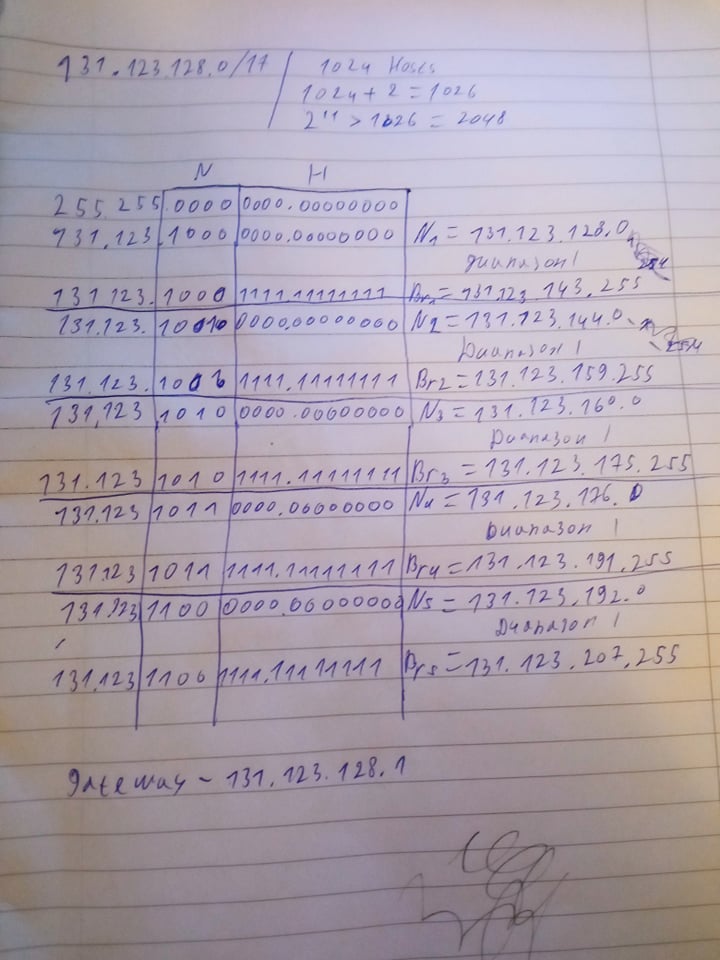 131.123.128.0/17
1024 Hoses
1024 + 2 = 1026
2¹¹ > 1026 = 2048
N H
255.255 .0000 0000.00000000
131.123 .1000 0000.00000000 N1 = 131.123.128.0
Диапазон 1 254
131.123. 1000 1111.11111111 Br1 = 131.123.143.255
131.123. 10010 0000.00000000 N2 = 131.123.144.0 - 254
Диапазон 1
131.123. 1001 1111.11111111 Br2 = 131.123.159.255
131.123 1010 0000.00000000 N3 = 131.123.160.0
Диапазон 1
131.123 1010 1111.11111111 Br3 = 131.123.175.255
131.123 1011 0000.00000000 N4 = 131.123.176.0
Диапазон 1
131.123 1011 1111.11111111 Br4 = 131.123.191.255
131.123 1100 0000.00000000 N5 = 131.123.192.0
Диапазон 1
131.123 1100 1111.11111111 Br5 = 131.123.207.255
gateway - 131.123.128.1